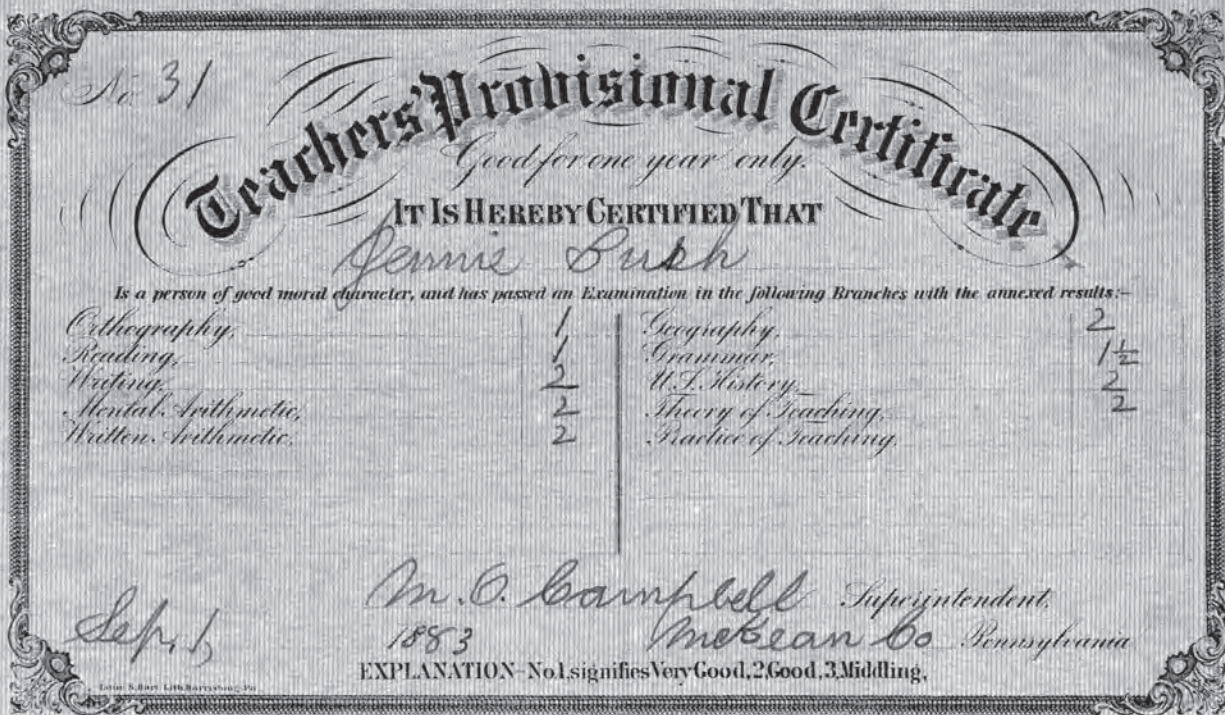 No. 31
Teachers' Provisional Certificate
Good for one year only.
IT IS HEREBY CERTIFIED THAT
Jennie Bush
Is a person of good moral character, and has passed an Examination in the following Branches with the annexed results:-
Orthography, 1
Reading, 1
Writing, 2
Mental Arithmetic, 2
Written Arithmetic, 2
Geography, 2
Grammar, 1½
U.S. History, 2
Theory of Teaching, 2
Practice of Teaching,
M. O. Campbell Superintendent,
Sep. 1, 1883 McKean Co Pennsylvania
EXPLANATION-No.1. signifies Very Good, 2, Good, 3, Middling,
S. Hart Lith. Harrisburg, Pa